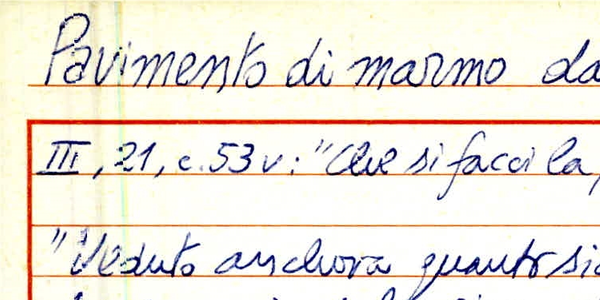 Pavimento di marmo da
III, 21, c. 53 v: "Che si facci la,
"Veduto anchora quanto sia